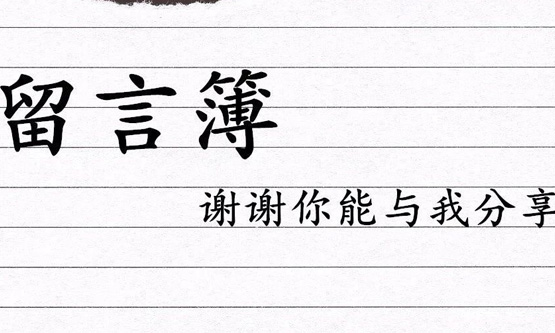 留言簿
谢谢你能与我分享